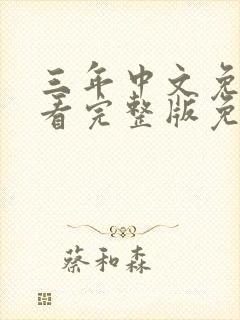 三年中文免
看完整版免
蔡和森